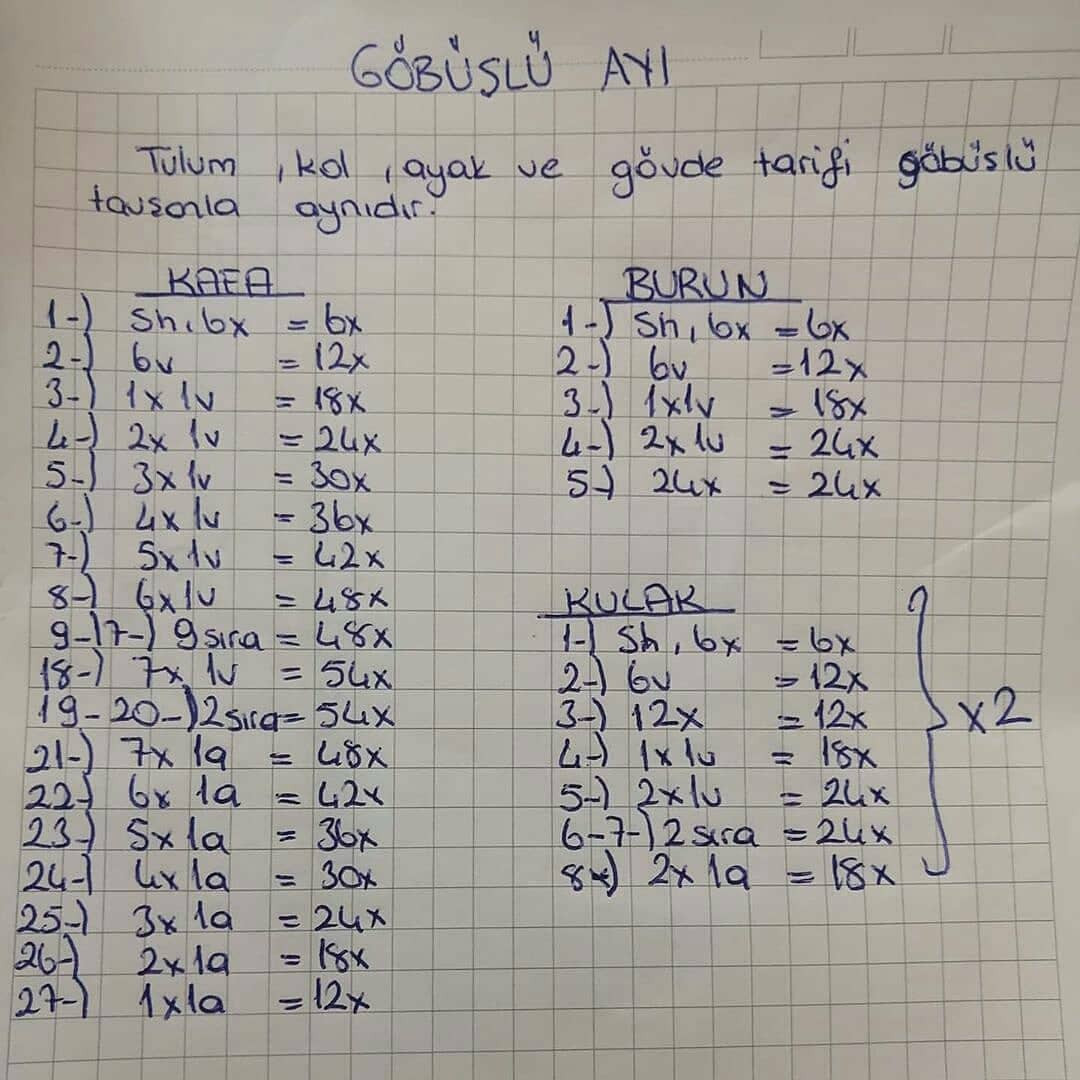 GÖBÜŞLÜ AYI
Tulum, kol, ayak ve gövde tarifi göbüşlü
tavşanla aynıdır.
KAFA
1-) Sh, 6x = 6x
2-) 6v = 12x
3-) 1x 1v = 18x
4-) 2x 1v = 24x
5-) 3x 1v = 30x
6-) 4x 1v = 36x
7-) 5x 1v = 42x
8-) 6x 1v = 48x
9-17-) 9 sıra = 48x
18-) 7x 1v = 54x
19-20-) 2 sıra = 54x
21-) 7x 1a = 48x
22-) 6x 1a = 42x
23-) 5x 1a = 36x
24-) 4x 1a = 30x
25-) 3x 1a = 24x
26-) 2x 1a = 18x
27-) 1x 1a = 12x
BURUN
1-) Sh, 6x = 6x
2-) 6v = 12x
3-) 1x 1v = 18x
4-) 2x 1v = 24x
5-) 24x = 24x
KULAK
1-) Sh, 6x = 6x
2-) 6v = 12x
3-) 12x = 12x
4-) 1x 1v = 18x
5-) 2x 1v = 24x
6-7-) 2 sıra = 24x
8-) 2x 1a = 18x
x2